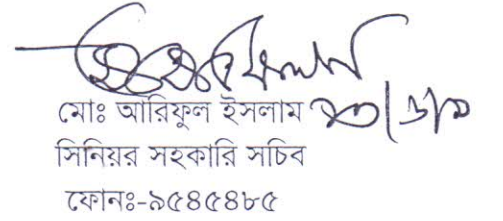 মোঃ আরিফুল ইসলাম
সিনিয়র সহকারি সচিব
ফোনঃ-৯৫৪৫৪৮৫